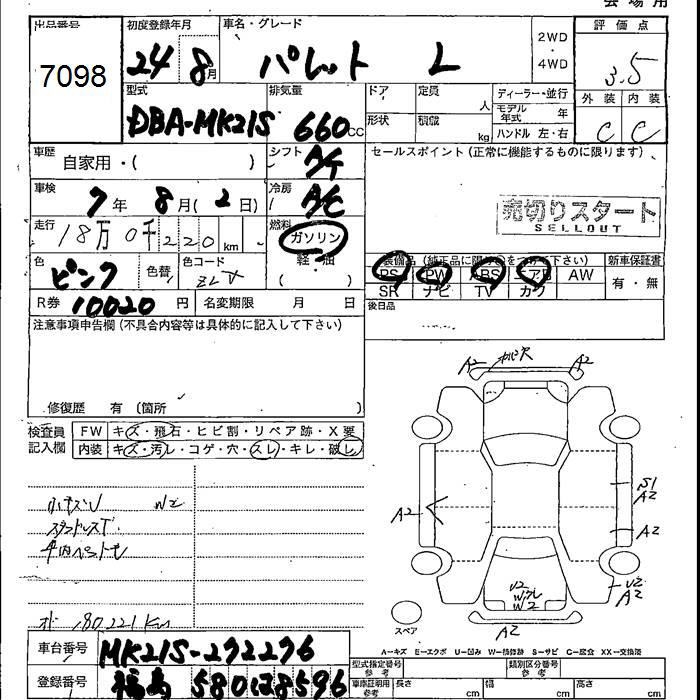 会場用
出品番号
7098
初度登録年月
24 8月
車名・グレード
パレット L
2WD
・
4WD
評価点
3.5
外装 内装
C C
型式
DBA-MK21S
排気量
660cc
ドア
定員
人
形状
積載
kg
ディーラー・並行
モデル年式 年
ハンドル 左・右
車歴
自家用・( )
シフト
A/T
セールスポイント(正常に機能するものに限ります)
車検
7年 8月(2日)
冷房
A/C
売切りスタート
SELLOUT
走行
18万0千220km
燃料
ガソリン
軽・油
( )
色
ピンク
色替
色コード
ZLV
装備品(純正品に限り○をつけて下さい)
新車保証書
PS PW ABS エアB AW
有・無
SR ナビ TV カワ
R券 10020円
名変期限 月 日
後日品
注意事項申告欄(不具合内容等は具体的に記入して下さい)
修復歴 有(箇所
検査員
記入欄
FW キズ・飛石・ヒビ割・リペア跡・X要
内装 キズ・汚レ・コゲ・穴・スレ・キレ・破レ
小キズU W2
車内ペットモ
180221Km
A2
A2
S1
A2
A2
A2
U2
A2
U2
W2
A2
スペア
A-キズ E-エクボ U-凹み W-補修跡 S-サビ C-腐食 XX-交換済
車台番号
MK21S-292296
登録番号
福島 580
型式指定番号
参考
類別区分番号
車庫証明用
参考
長さ cm
幅 cm
高さ cm